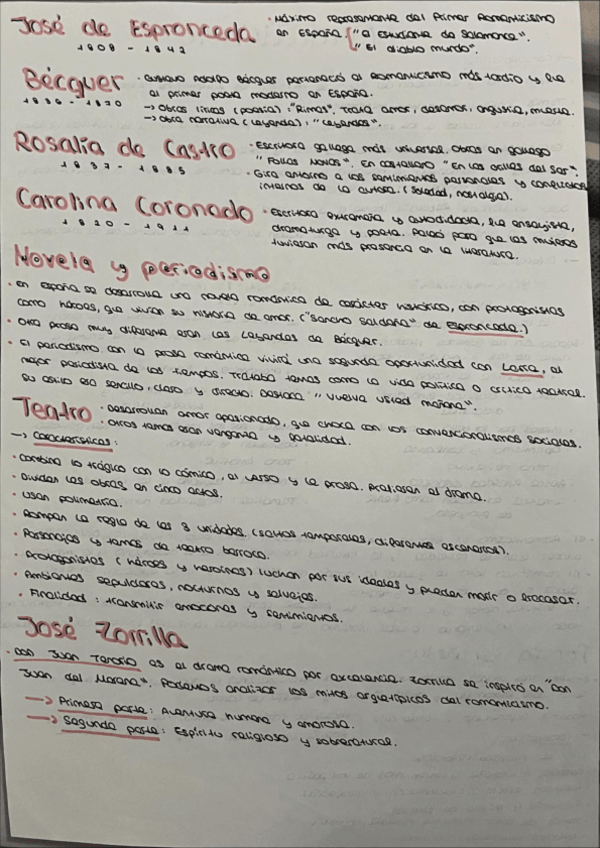 José de Espronceda
1808 - 1842
· Máximo representante del Primer Romanticismo
en España { "a estudiante de Salamanca".
"El diablo mundo".
Bécquer
1836 - 1870
· Gustavo Adolfo Bécquer perteneció al Romanticismo más tardío y fue
el primer poeta moderno en España.
→ Obras líricas (poesía): "Rimas". Trata amor, desamor, angustia, muerte.
→ Obra narrativa (leyenda): "Leyendas".
Rosalía de Castro
1837 - 1885
· Escritora gallega más universal. Obras en gallego
"Follas Novas". En castellano "En las orillas del Sar".
· Gira entorno a los sentimientos personales y conflictos
internos de la autora. (Soledad, nostalgia).
Carolina Coronado
1820 - 1911
· Escritora extremeña y autodidacta, fue ensayista,
dramaturga y poeta. Peleó para que las mujeres
tuviesen más presencia en la literatura.
Novela y periodismo
· En España se desarrolla una novela romántica de carácter histórico, con protagonistas
como héroes, que viven su historia de amor. ("Sancho Saldaña" de Espronceda.)
· Otra prosa muy diferente eran las Leyendas de Bécquer.
· El periodismo con la prosa romántica vivirá una segunda oportunidad con Larra, el
mejor periodista de los tiempos. Trataba temas como la vida política o crítica teatral.
Su estilo era sencillo, claro y directo. Destaca "Vuelva usted mañana".
Teatro
· Desarrollan amor apasionado, que choca con los convencionalismos sociales.
· Otros temas eran venganza y fatalidad.
→ Características:
· Combina lo trágico con lo cómico, el verso y la prosa. Prefieren el drama.
· Dividen las obras en cinco actos.
· Usan polimetría.
· Rompen la regla de las 3 unidades. (saltos temporales, diferentes escenarios).
· Personajes y temas de teatro barroco.
· Protagonistas (héroes y heroínas) luchan por sus ideales y pueden morir o fracasar.
· Ambientes sepulcrales, nocturnos y salvajes.
· Finalidad: transmitir emociones y sentimientos.
José Zorrilla
· Don Juan Tenorio es el drama romántico por excelencia. Zorrilla se inspiró en "Don
Juan del Marana". Podemos analizar los mitos arquetípicos del romanticismo.
→ Primera parte: Aventura humana y amorosa.
→ Segunda parte: Espíritu religioso y sobrenatural.